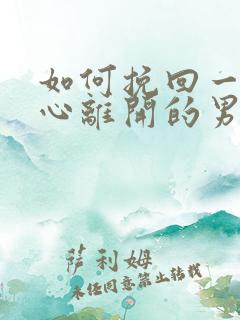 如何挽回一
心離開的男
薩利姆
未经同意禁止转载